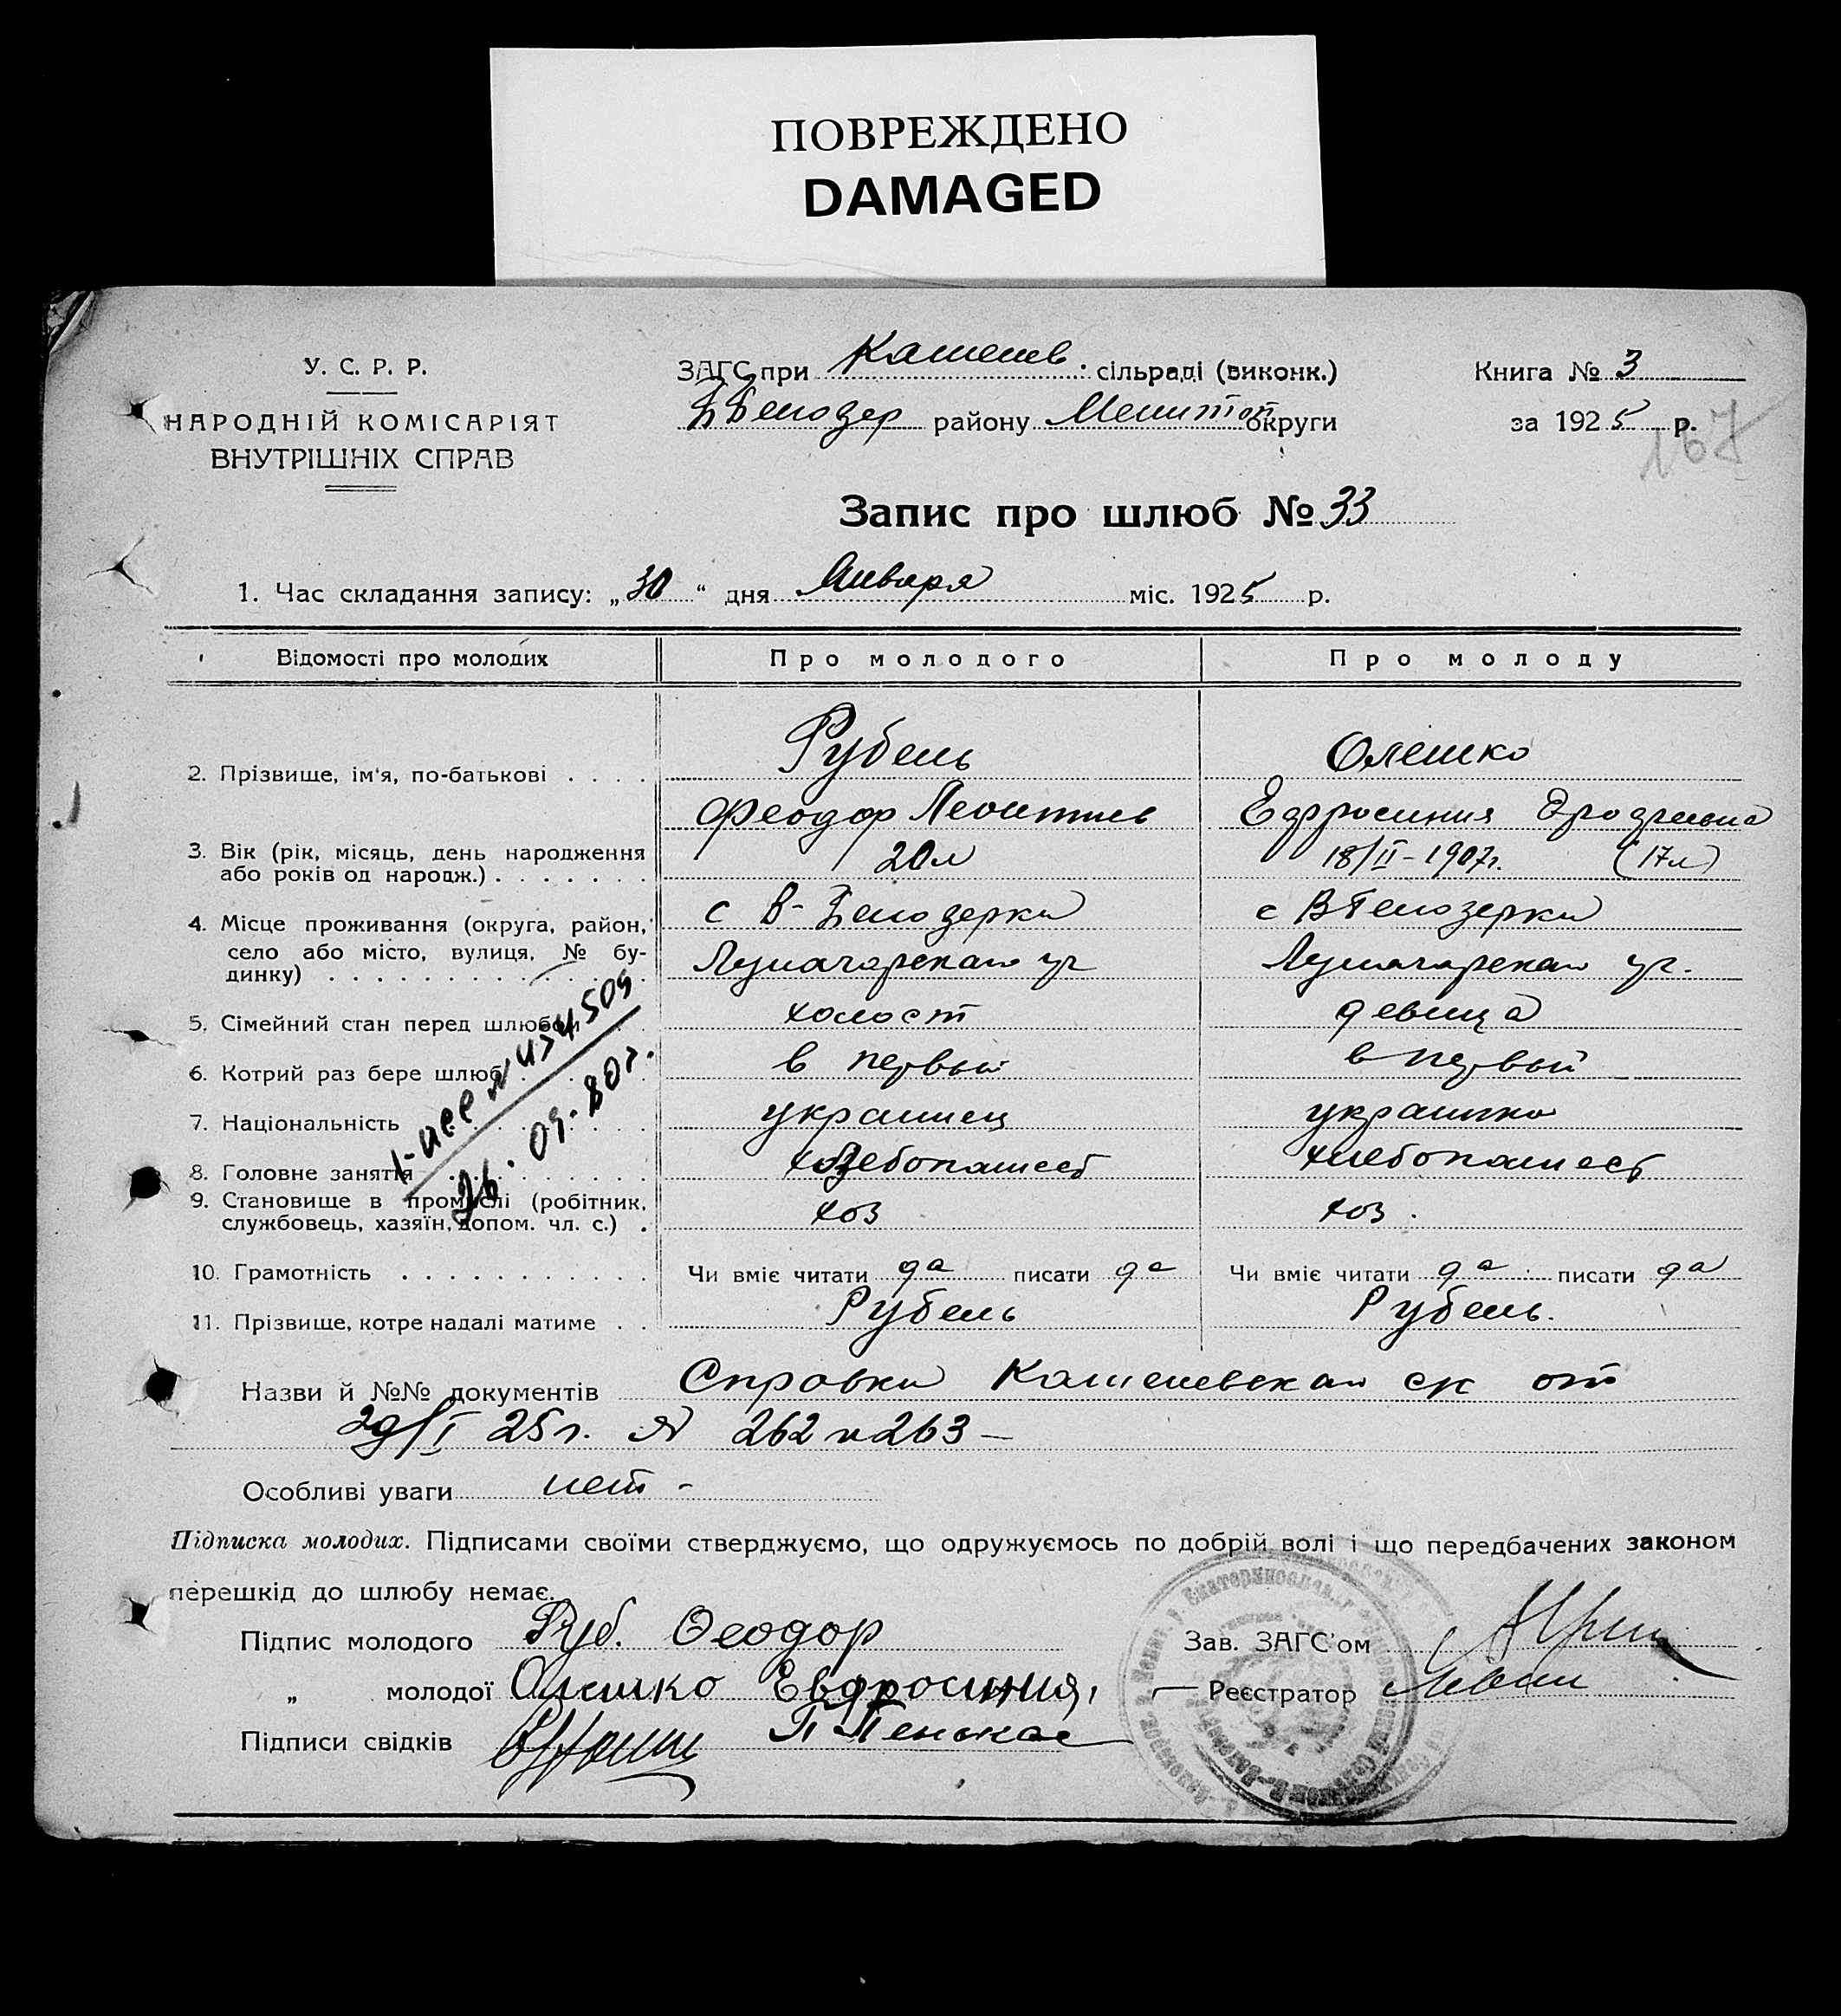 ПОВРЕЖДЕНО
DAMAGED
У. С. Р. Р.
НАРОДНІЙ КОМІСАРІЯТ
ВНУТРІШНІХ СПРАВ
ЗАГС при сільраді (виконк.)
району Мелитоп округи
Книга № 3
за 1925 р.
167
Запис про шлюб № 33
1. Час складання запису: „30“ дня Января міс. 1925 р.
Відомості про молодих Про молодого Про молоду
2. Прізвище, ім'я, по-батькові . . . . Рубель Олешко
Феодор Леонтиев Ефросиния
3. Вік (рік, місяць, день народження
або років од народж.) . . . . . . . 20 л 18/II-1907г. (17л)
4. Місце проживання (округа, район, с В-Белозерки с В Белозерки
село або місто, вулиця, № бу-
динку) . . . . . . . . . . . . Луначарская ул Луначарская ул.
5. Сімейний стан перед шлюбом . . холост девица
6. Котрий раз бере шлюб . . . . в первый в первый
7. Національність . . . . . . . . украинец украинка
8. Головне заняття . . . . . . . хлебопашест хлебопашест
9. Становище в промислі (робітник,
службовець, хазяїн, допом. чл. с.) . хоз хоз.
26.09.80г.
10. Грамотність . . . . . . . . . . . Чи вміє читати да писати да Чи вміє читати да писати да
11. Прізвище, котре надалі матиме . . Рубель Рубель.
Назви й №№ документів Справки ск от
29/I 25г. № 262 и 263 -
Особливі уваги нет -
Підписка молодих. Підписами своїми стверджуємо, що одружуємось по добрій волі і що передбачених законом
перешкід до шлюбу немає.
Підпис молодого Руб. Феодор
Зав. ЗАГС'ом
„ молодої Олешко Евдросиния,
Реєстратор
Підписи свідків